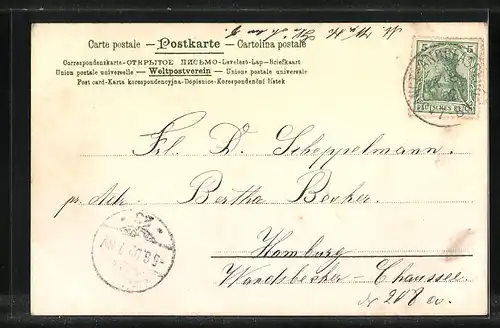 Carte postale – Postkarte – Cartolina postale
Correspondenzkarte-ОТКРЫТОЕ ПИСЬМО-Levelező-Lap-Briefkaart
Union postale universelle – Weltpostverein – Unione postale universale
Post card-Karta korespondencyjna-Dopisnice-Korespondenční lístek
5 5
DEUTSCHES REICH
Frl. D. Scheppelmann.
pr. Adr. Bertha Becker.
Hamburg
Wandsbecker-Chaussee
№ 208